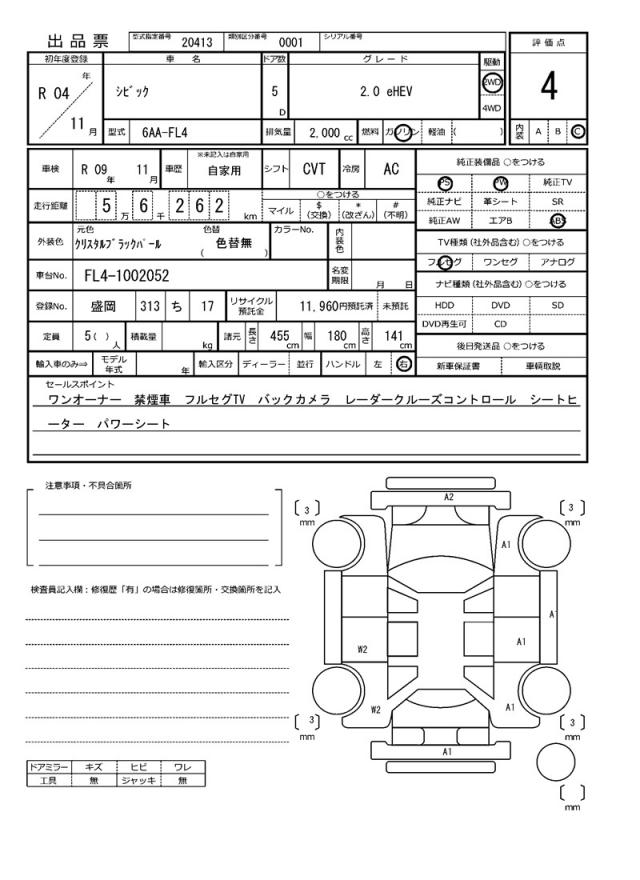 出品票 型式指定番号 20413 類別区分番号 0001 シリアル番号
評価点
4
内装 A B C
初年度登録 車名 ドア数 グレード 駆動
R 04 年 11 月
シビック 5 D 2.0 eHEV 2WD
4WD
型式 6AA-FL4 排気量 2,000 cc 燃料 ガソリン 軽油 ( )
車検 R 09 年 11 月 車歴 ※未記入は自家用 自家用 シフト CVT 冷房 AC
走行距離 5 万 6 千 2 6 2 km
○をつける
マイル $ (交換) * (改ざん) # (不明)
外装色 元色 クリスタルブラックパール 色替 ( 色替無 ) カラーNo. 内装色
車台No. FL4-1002052 名変期限 月 日
登録No. 盛岡 313 ち 17 リサイクル預託金 11,960円預託済 未預託
定員 5( ) 人 積載量 kg 諸元 長さ 455 cm 幅 180 cm 高さ 141 cm
輸入車のみ⇒ モデル年式 年 輸入区分 ディーラー 並行 ハンドル 左 右
純正装備品 ○をつける
PS PW 純正TV
純正ナビ 革シート SR
純正AW エアB ABS
TV種類 (社外品含む) ○をつける
フルセグ ワンセグ アナログ
ナビ種類 (社外品含む) ○をつける
HDD DVD SD
DVD再生可 CD
後日発送品 ○をつける
新車保証書 車輌取説
セールスポイント
ワンオーナー 禁煙車 フルセグTV バックカメラ レーダークルーズコントロール シートヒ
ーター パワーシート
注意事項・不具合箇所
検査員記入欄：修復歴「有」の場合は修復箇所・交換箇所を記入
ドアミラー キズ ヒビ ワレ
工具 無 ジャッキ 無
A2
[ 3 ] mm
[ 3 ] mm
A1
A1
W2
A1
W2
A1
[ 3 ] mm
[ 3 ] mm
A1
[ ] mm